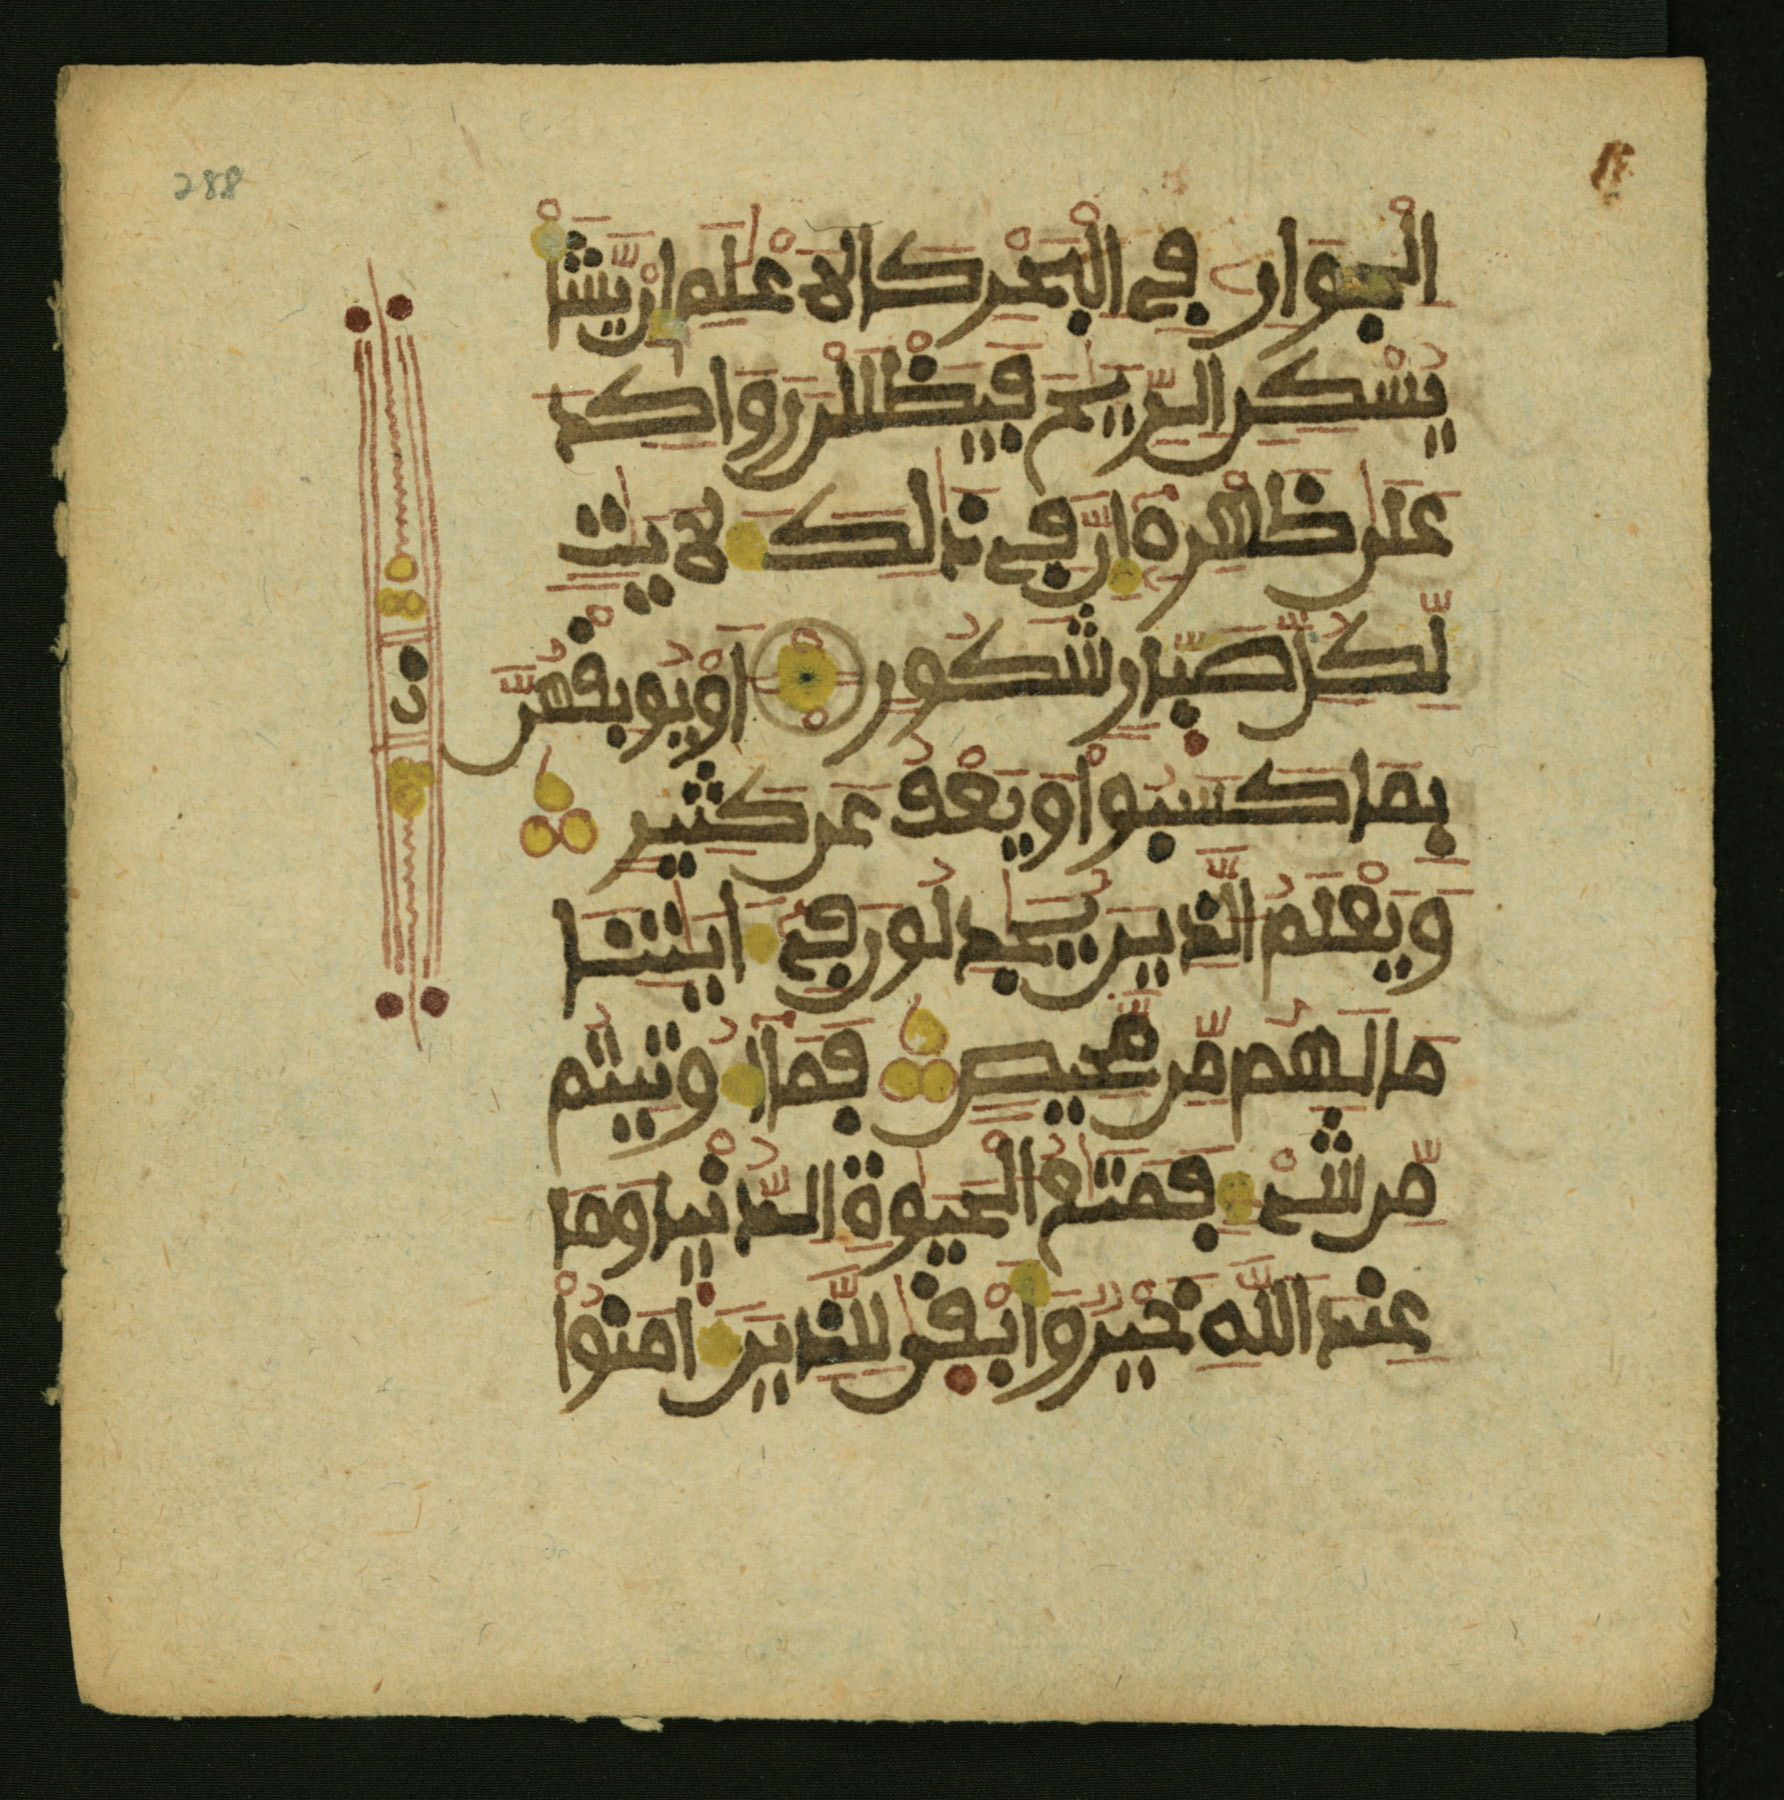 288
الْجَوَارِ فِي الْبَحْرِ كَالَاعْلَٰمِ إِنْ يَّشَأْ
يُسْكِنِ الرِّيَٰحَ فَيَظْلَلْنَ رَوَاكِدَ
عَلَىٰ ظَهْرِهِ إِنَّ فِي ذَٰلِكَ لَأَيَٰتٍ
لِّكُلِّ صَبَّارٍ شَكُورٍ أَوْ يُوبِقْهُنَّ
بِمَا كَسَبُواْ وَيَعْفُ عَن كَثِيرٍ
وَيَعْلَمُ الَّذِينَ يُجَٰدِلُونَ فِي ءَايَٰتِنَا
مَا لَهُم مِّن مَّحِيصٍ فَمَا أُوتِيتُم
مِّن شَيْءٍ فَمَتَٰعُ الْحَيَوٰةِ الدُّنْيَا وَمَا
عِندَ اللَّهِ خَيْرٌ وَأَبْقَىٰ لِلَّذِينَ ءَامَنُواْ